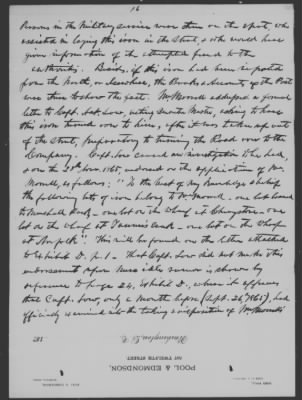 16
Persons in the Military service were then on the spot, who
assisted in laying this iron in the Street, & who would have
given information of the attempted fraud to the
authorities. Besides, if this iron had been imported
from the North, or elsewhere, the Books & Accounts of the Port
was then to show the fact. Mr Morrell addresses a formal
letter to Capt. Jas. Low, acting Quarter Master, asking to have
this iron turned over to him, after it was taken up out
of the Street, preparatory to turning the Road over to the
Company. Capt. Low caused an investigation to be had,
& on the 21st Nov. 1865, endorsed on the application of Mr
Morrell, as follows: "To the best of my knowledge & belief
the following lots of iron belong to Mr Morrell - one lot loaned
to Marshall Road, - one lot on the wharf at
lot on the wharf at - one lot on the Wharf
at Norfolk". This will be found on the letter attached
to Exhibit D. p. 1 - That Capt. Low did not make this
endorsement upon mere idle rumor is shown by
reference to page 24, Exhibit D., when it appears
that Capt. Low, only a month before (Sept. 26, 1865), had
officially examined into the taking & disposition of Mr Morrell's
Washington, D. C. 187
POOL & EDMONDSON,
TWELFTH STREET